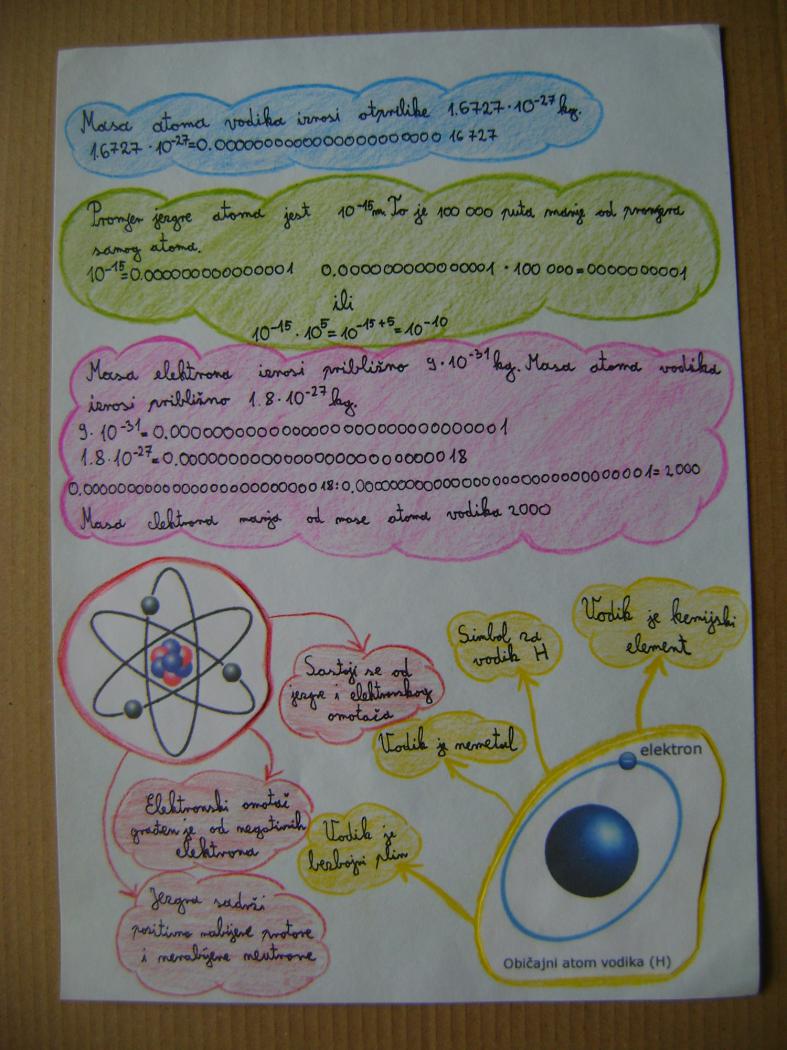 Masa atoma vodika iznosi otprilike 1.6727 · 10⁻²⁷ kg.
1.6727 · 10⁻²⁷=0.00000000000000000000000 16727
Promjer jezgre atoma jest 10⁻¹⁵m. To je 100 000 puta manje od promjera
samog atoma.
10⁻¹⁵=0.000000000000001 0.000000000000001 · 100 000=0000000001
ili
10⁻¹⁵ · 10⁵=10⁻¹⁵⁺⁵=10⁻¹⁰
Masa elektrona iznosi približno 9·10⁻³¹kg. Masa atoma vodika
iznosi približno 1.8·10⁻²⁷kg.
9·10⁻³¹=0.0000000000000000000000000000001
1.8·10⁻²⁷=0.00000000000000000000000000 18
0.00000000000000000000000000 18:0.0000000000000000000000000000001=2000
Masa elektrona manja od mase atoma vodika 2000
Sastoji se od
jezgre i elektronskog
omotača
Simbol za
vodik H
Vodik je kemijski
element
Vodik je nemetal
elektron
Elektronski omotač
građen je od negativnih
elektrona
Vodik je
bezbojni plin
Jezgra sadrži
pozitivno nabijene protone
i nenabijene neutrone
Običajni atom vodika (H)